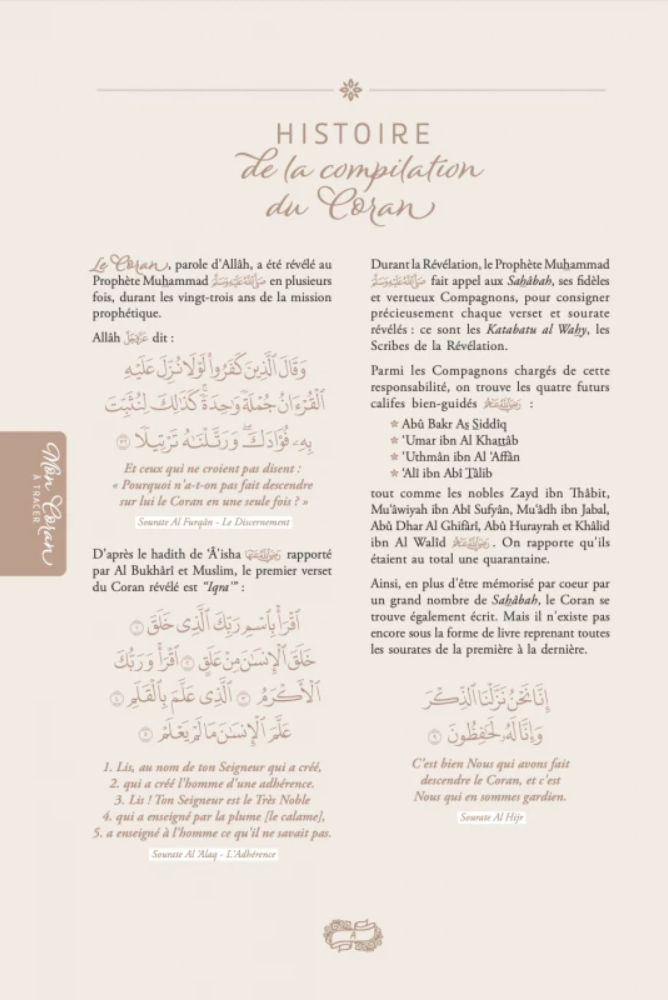 HISTOIRE
de la compilation
du Coran
Le Coran, parole d'Allâh, a été révélé au
Prophète Muhammad ﷺ en plusieurs
fois, durant les vingt-trois ans de la mission
prophétique.
Allâh dit :
وَقَالَ ٱلَّذِينَ كَفَرُوا۟ لَوْلَا نُزِّلَ عَلَيْهِ
ٱلْقُرْءَانُ جُمْلَةً وَٰحِدَةً ۚ كَذَٰلِكَ لِنُثَبِّتَ
بِهِۦ فُؤَادَكَ ۖ وَرَتَّلْنَٰهُ تَرْتِيلًا ٣٢
Et ceux qui ne croient pas disent :
« Pourquoi n'a-t-on pas fait descendre
sur lui le Coran en une seule fois ? »
Sourate Al Furqân - Le Discernement
D'après le hadith de 'Â'isha rapporté
par Al Bukhârî et Muslim, le premier verset
du Coran révélé est "Iqra'" :
ٱقْرَأْ بِٱسْمِ رَبِّكَ ٱلَّذِى خَلَقَ ١
خَلَقَ ٱلْإِنسَٰنَ مِنْ عَلَقٍ ٢ ٱقْرَأْ وَرَبُّكَ
ٱلْأَكْرَمُ ٣ ٱلَّذِى عَلَّمَ بِٱلْقَلَمِ ٤
عَلَّمَ ٱلْإِنسَٰنَ مَا لَمْ يَعْلَمْ ٥
1. Lis, au nom de ton Seigneur qui a créé,
2. qui a créé l'homme d'une adhérence.
3. Lis ! Ton Seigneur est le Très Noble
4. qui a enseigné par la plume [le calame],
5. a enseigné à l'homme ce qu'il ne savait pas.
Sourate Al 'Alaq - L'Adhérence
Durant la Révélation, le Prophète Muhammad
ﷺ fait appel aux Sahâbah, ses fidèles
et vertueux Compagnons, pour consigner
précieusement chaque verset et sourate
révélés : ce sont les Katabatu al Wahy, les
Scribes de la Révélation.
Parmi les Compagnons chargés de cette
responsabilité, on trouve les quatre futurs
califes bien-guidés :
Abû Bakr As Siddîq
'Umar ibn Al Khattâb
'Uthmân ibn Al 'Affân
'Alî ibn Abî Tâlib
tout comme les nobles Zayd ibn Thâbit,
Mu'âwiyah ibn Abî Sufyân, Mu'âdh ibn Jabal,
Abû Dhar Al Ghifârî, Abû Hurayrah et Khâlid
ibn Al Walîd . On rapporte qu'ils
étaient au total une quarantaine.
Ainsi, en plus d'être mémorisé par coeur par
un grand nombre de Sahâbah, le Coran se
trouve également écrit. Mais il n'existe pas
encore sous la forme de livre reprenant toutes
les sourates de la première à la dernière.
إِنَّا نَحْنُ نَزَّلْنَا ٱلذِّكْرَ
وَإِنَّا لَهُۥ لَحَٰفِظُونَ ٩
C'est bien Nous qui avons fait
descendre le Coran, et c'est
Nous qui en sommes gardien.
Sourate Al Hijr
Mon Coran
À TRACER
A